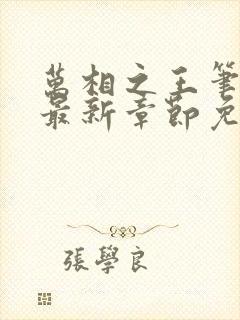 萬相之王筆
最新章節免
張學良